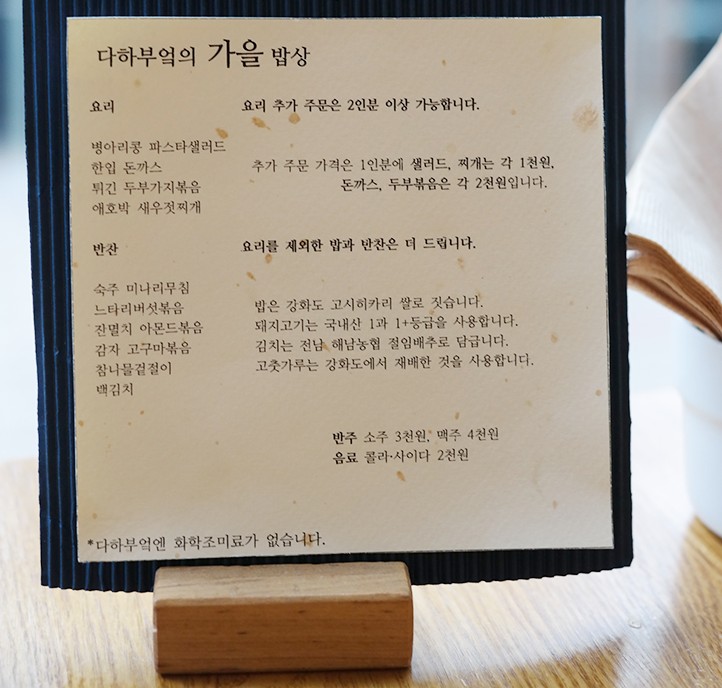 다하부엌의 가을 밥상
요리 요리 추가 주문은 2인분 이상 가능합니다.
병아리콩 파스타샐러드
한입 돈까스 추가 주문 가격은 1인분에 샐러드, 찌개는 각 1천원,
튀긴 두부가지볶음 돈까스, 두부볶음은 각 2천원입니다.
애호박 새우젓찌개
반찬 요리를 제외한 밥과 반찬은 더 드립니다.
숙주 미나리무침
느타리버섯볶음 밥은 강화도 고시히카리 쌀로 짓습니다.
잔멸치 아몬드볶음 돼지고기는 국내산 1과 1+등급을 사용합니다.
감자 고구마볶음 김치는 전남 해남농협 절임배추로 담급니다.
참나물겉절이 고춧가루는 강화도에서 재배한 것을 사용합니다.
백김치
반주 소주 3천원, 맥주 4천원
음료 콜라·사이다 2천원
*다하부엌엔 화학조미료가 없습니다.